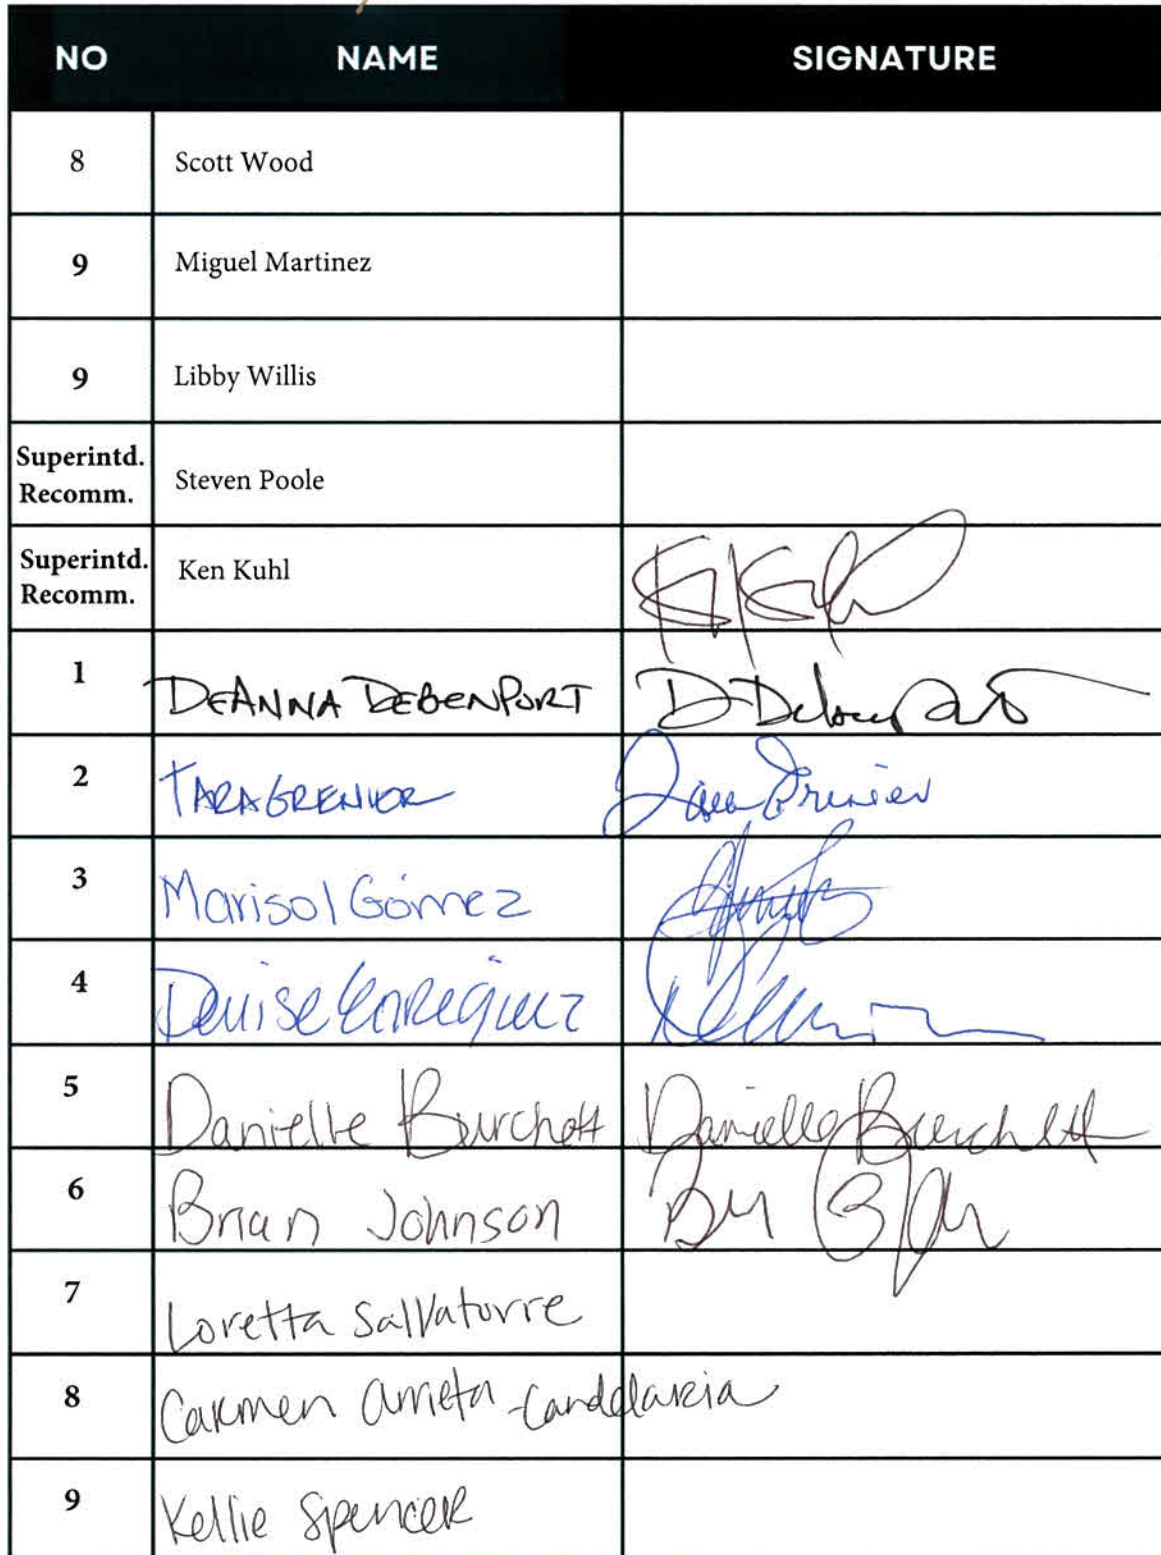 NO NAME SIGNATURE
8 Scott Wood
9 Miguel Martinez
9 Libby Willis
Superintd. Recomm. Steven Poole
Superintd. Recomm. Ken Kuhl
1 DEANNA DEBENPORT
2 TARA GRENIER Tara Grenier
3 Marisol Gómez
4 Denise Enriquez
5 Danielle Burchett Danielle Burchett
6 Brian Johnson
7 Loretta Salvatorre
8 Carmen Arrieta-Candelaria
9 Kellie Spencer